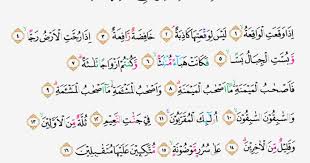 إِذَا وَقَعَتِ الْوَاقِعَةُ ۝١ لَيْسَ لِوَقْعَتِهَا كَاذِبَةٌ ۝٢ خَافِضَةٌ رَّافِعَةٌ ۝٣ إِذَا رُجَّتِ الْأَرْضُ رَجًّا ۝٤
وَبُسَّتِ الْجِبَالُ بَسًّا ۝٥ فَكَانَتْ هَبَاءً مُّنْبَثًّا ۝٦ وَكُنْتُمْ أَزْوَاجًا ثَلَاثَةً ۝٧
فَأَصْحَابُ الْمَيْمَنَةِ مَا أَصْحَابُ الْمَيْمَنَةِ ۝٨ وَأَصْحَابُ الْمَشْأَمَةِ مَا أَصْحَابُ الْمَشْأَمَةِ ۝٩
وَالسَّابِقُونَ السَّابِقُونَ ۝١٠ أُولَٰئِكَ الْمُقَرَّبُونَ ۝١١ فِي جَنَّاتِ النَّعِيمِ ۝١٢ ثُلَّةٌ مِّنَ الْأَوَّلِينَ ۝١٣
وَقَلِيلٌ مِّنَ الْآخِرِينَ ۝١٤ عَلَىٰ سُرُرٍ مَّوْضُونَةٍ ۝١٥ مُتَّكِئِينَ عَلَيْهَا مُتَقَابِلِينَ ۝١٦